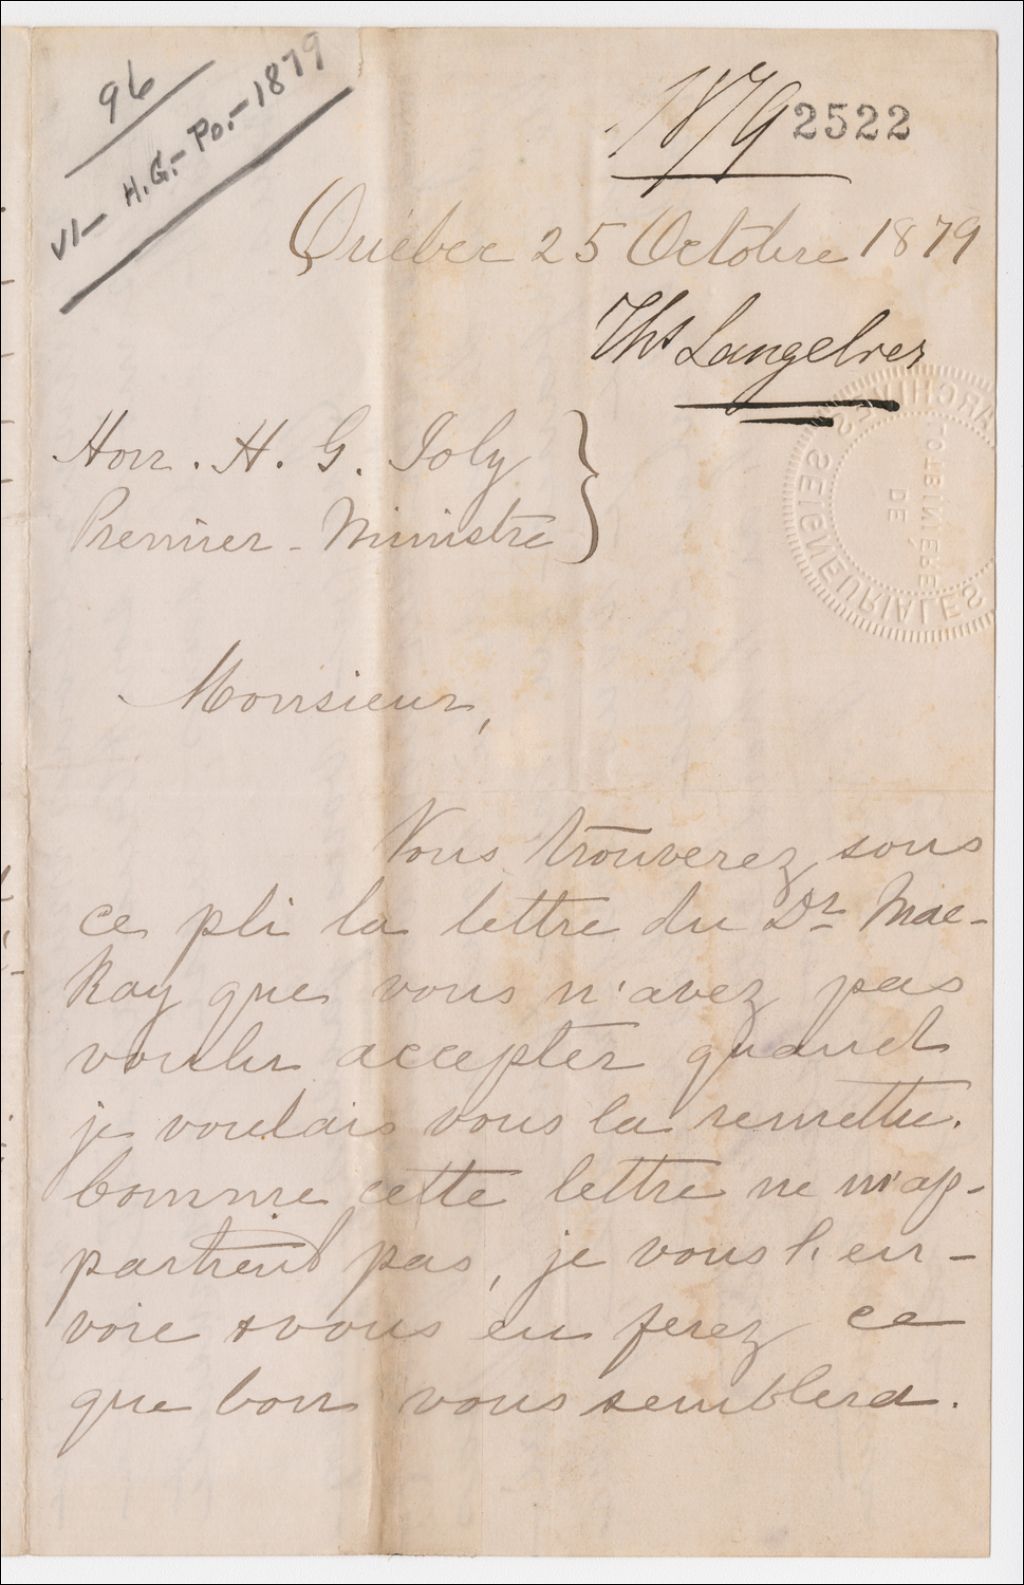 96
VI- H.G.- Po.- 1879
1879 2522
Québec 25 Octobre 1879
Ths Langelier
Hon. H. G. Joly
Premier-Ministre
ARCHIVES SEIGNEURIALES
DE
LOTBINIÈRE
Monsieur,
Vous trouverez sous
ce pli la lettre du Dr Mac-
Kay que vous n'avez pas
voulu accepter quand
je voulais vous la remettre.
Comme cette lettre ne m'ap-
partient pas, je vous l'en-
voie & vous en ferez ce
que bon vous semblera.